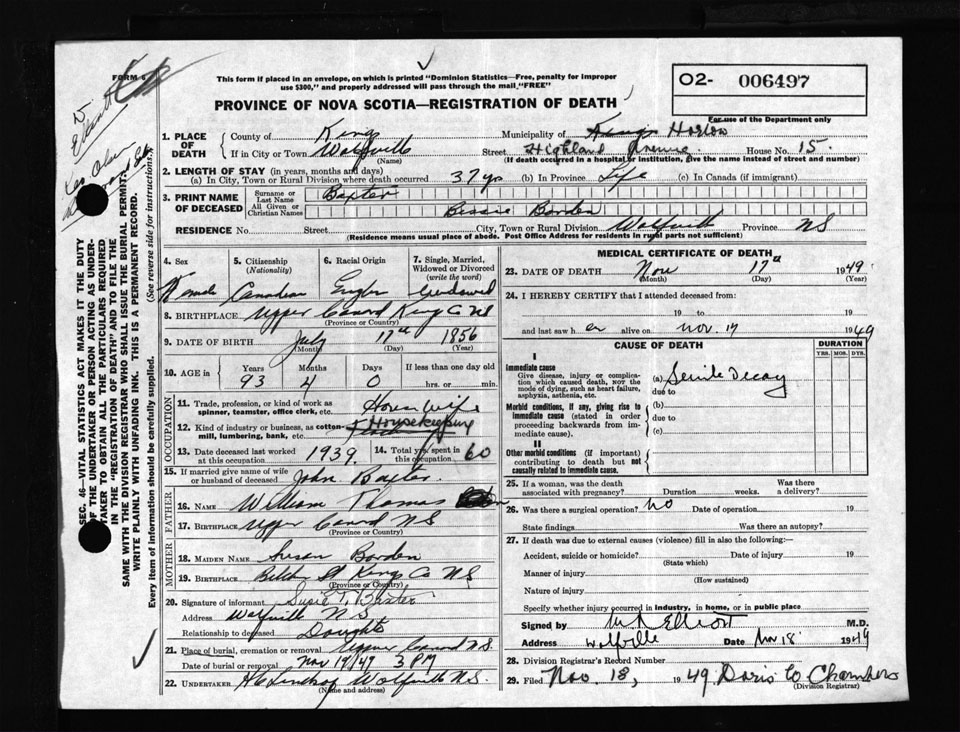 FORM 6
This form if placed in an envelope, on which is printed "Dominion Statistics—Free, penalty for improper
use $300," and properly addressed will pass through the mail "FREE"
O2- 006497
For use of the Department only
PROVINCE OF NOVA SCOTIA—REGISTRATION OF DEATH
W Elliott
SEC. 46—VITAL STATISTICS ACT MAKES IT THE DUTY
OF THE UNDERTAKER OR PERSON ACTING AS UNDER-
TAKER TO OBTAIN ALL THE PARTICULARS REQUIRED
IN THE "REGISTRATION OF DEATH" AND TO FILE THE
SAME WITH THE DIVISION REGISTRAR WHO SHALL ISSUE THE BURIAL PERMIT.
WRITE PLAINLY WITH UNFADING INK. THIS IS A PERMANENT RECORD.
Every item of information should be carefully supplied. (See reverse side for instructions.)
1. PLACE OF DEATH
County of Kings Municipality of Kings Horton
If in City or Town Wolfville (Name) Street Highland Avenue House No. 15.
(If death occurred in a hospital or institution, give the name instead of street and number)
2. LENGTH OF STAY (in years, months and days)
(a) In City, Town or Rural Division where death occurred 37 yrs (b) In Province Life (c) In Canada (if immigrant)
3. PRINT NAME OF DECEASED
Surname or Last Name Baxter
All Given or Christian Names Bessie Borden
RESIDENCE No. Street City, Town or Rural Division Wolfville Province NS
(Residence means usual place of abode. Post Office Address for residents in rural parts not sufficient)
4. Sex 5. Citizenship (Nationality) 6. Racial Origin 7. Single, Married, Widowed or Divorced (write the word)
Female Canadian English Widowed
8. BIRTHPLACE Upper Canard Kings Co NS
(Province or Country)
9. DATE OF BIRTH July 17th 1856
(Month) (Day) (Year)
10. AGE in Years Months Days If less than one day old
93 4 0 hrs. or min.
OCCUPATION
11. Trade, profession, or kind of work as spinner, teamster, office clerk, etc. House Wife
12. Kind of industry or business, as cotton-mill, lumbering, bank, etc. Housekeeping
13. Date deceased last worked at this occupation 1939. 14. Total yrs. spent in this occupation 60
15. If married give name of wife or husband of deceased John Baxter
FATHER
16. Name William Thomas
17. BIRTHPLACE Upper Canard NS
(Province or Country)
MOTHER
18. MAIDEN NAME Susan Borden
19. BIRTHPLACE Belcher St Kings Co NS
(Province or Country)
20. Signature of informant Susie T. Baxter
Address Wolfville NS
Relationship to deceased Daughter
21. Place of burial, cremation or removal Upper Canard NS.
Date of burial or removal Nov 19/49 3 PM
22. UNDERTAKER Wolfville NS.
(Name and address)
MEDICAL CERTIFICATE OF DEATH
23. DATE OF DEATH Nov 17th 1949
(Month) (Day) (Year)
24. I HEREBY CERTIFY that I attended deceased from:
19 to 19
and last saw h er alive on Nov. 17 1949
CAUSE OF DEATH DURATION
YRS. MOS. DYS.
I
Immediate cause
Give disease, injury or complication which caused death, NOT the mode of dying, such as heart failure, asphyxia, asthenia, etc.
(a) Senile Decay
due to
Morbid conditions, if any, giving rise to immediate cause (stated in order proceeding backwards from immediate cause).
(b)
due to
(c)
II
Other morbid conditions (if important) contributing to death but not causally related to immediate cause.
25. If a woman, was the death associated with pregnancy? Duration weeks. Was there a delivery?
26. Was there a surgical operation? no Date of operation 19
State findings Was there an autopsy?
27. If death was due to external causes (violence) fill in also the following:—
Accident, suicide or homicide? Date of injury 19
(State which)
Manner of injury
(How sustained)
Nature of injury
Specify whether injury occurred in industry, in home, or in public place
Signed by Elliott M.D.
Address Wolfville Date Nov 18 1949
28. Division Registrar's Record Number
29. Filed Nov. 18, 1949 Doris Chambers
(Division Registrar)